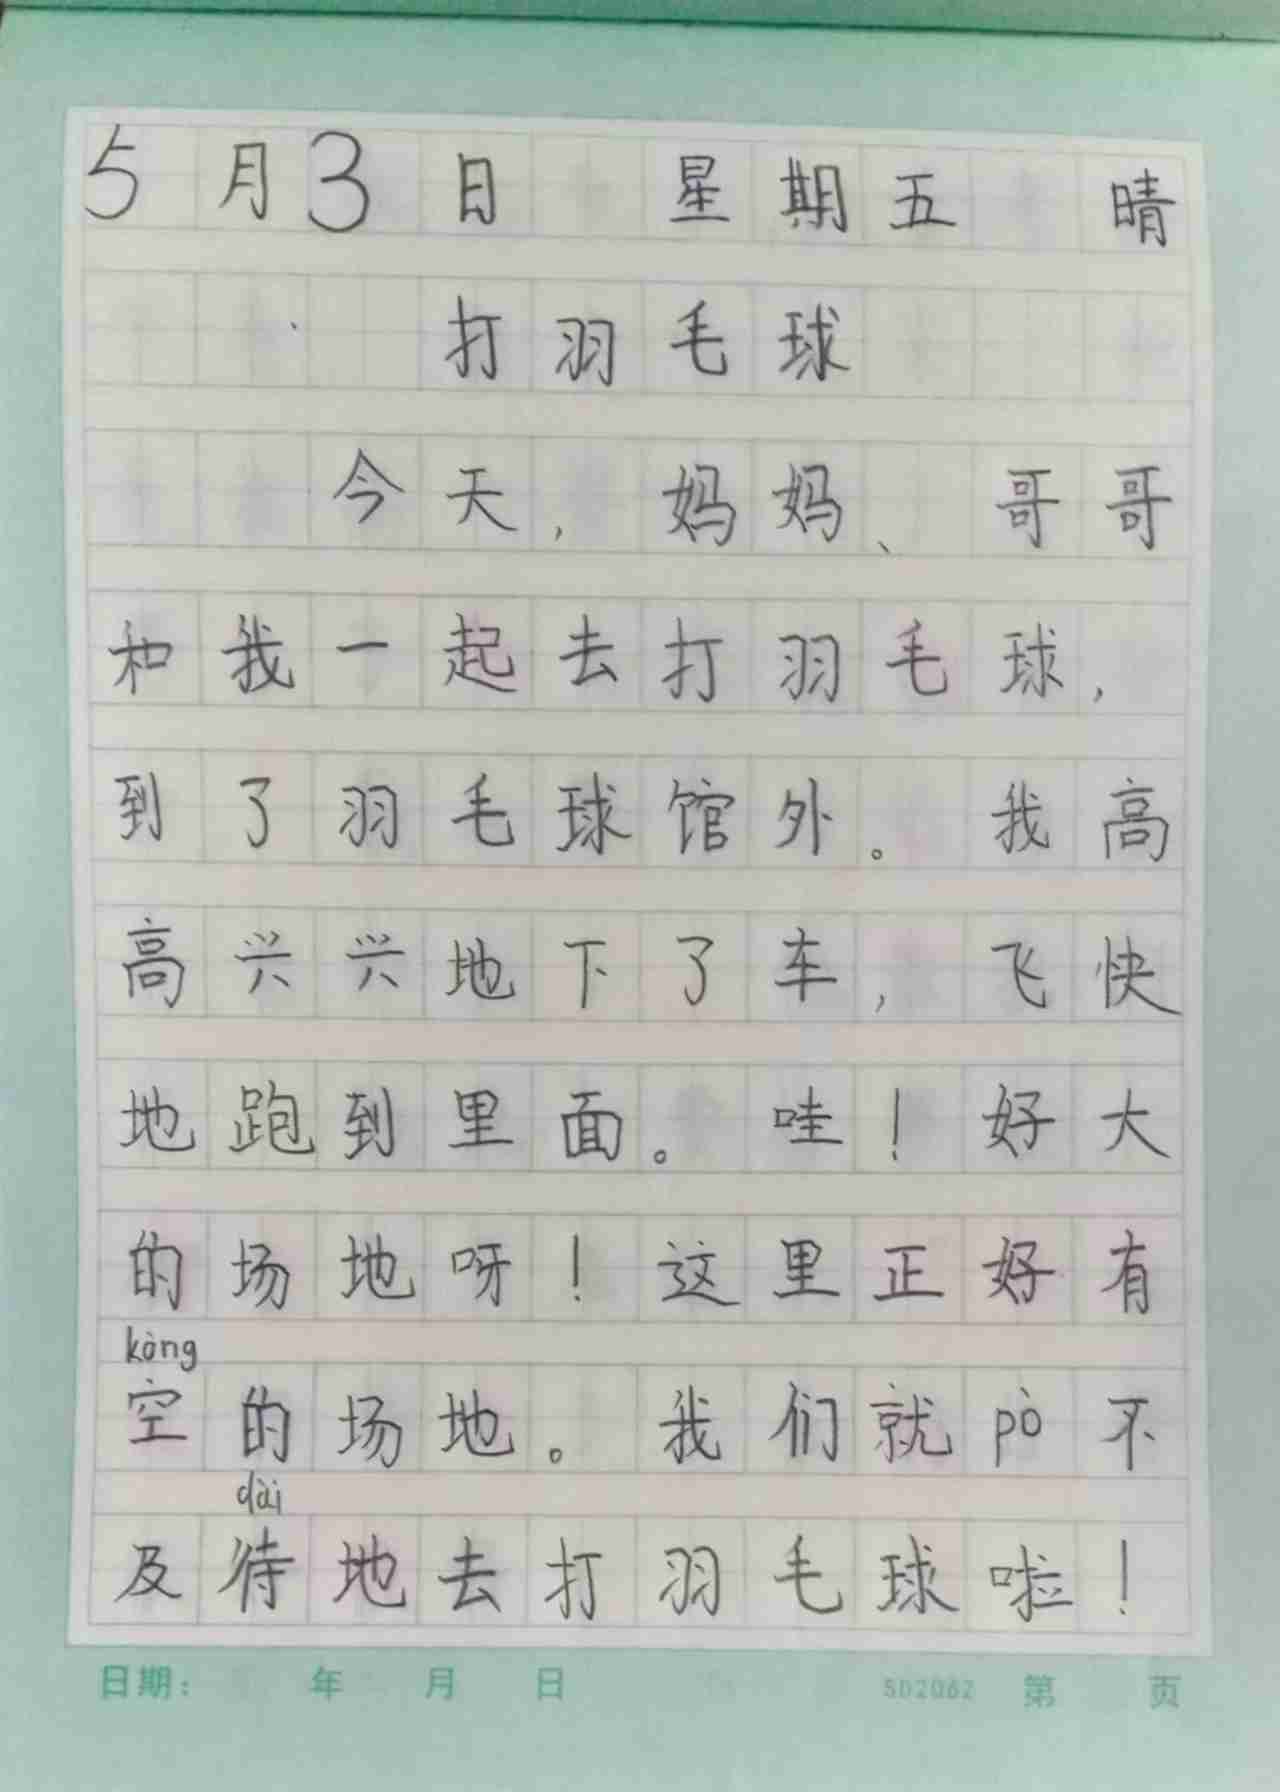 5月3日 星期五 晴
打羽毛球
今天，妈妈、哥哥
和我一起去打羽毛球，
到了羽毛球馆外。我高
高兴兴地下了车，飞快
地跑到里面。哇！好大
的场地呀！这里正好有
kòng
空的场地。我们就pò不
dài
及待地去打羽毛球啦！
日期： 年 月 日 SD2082 第 页